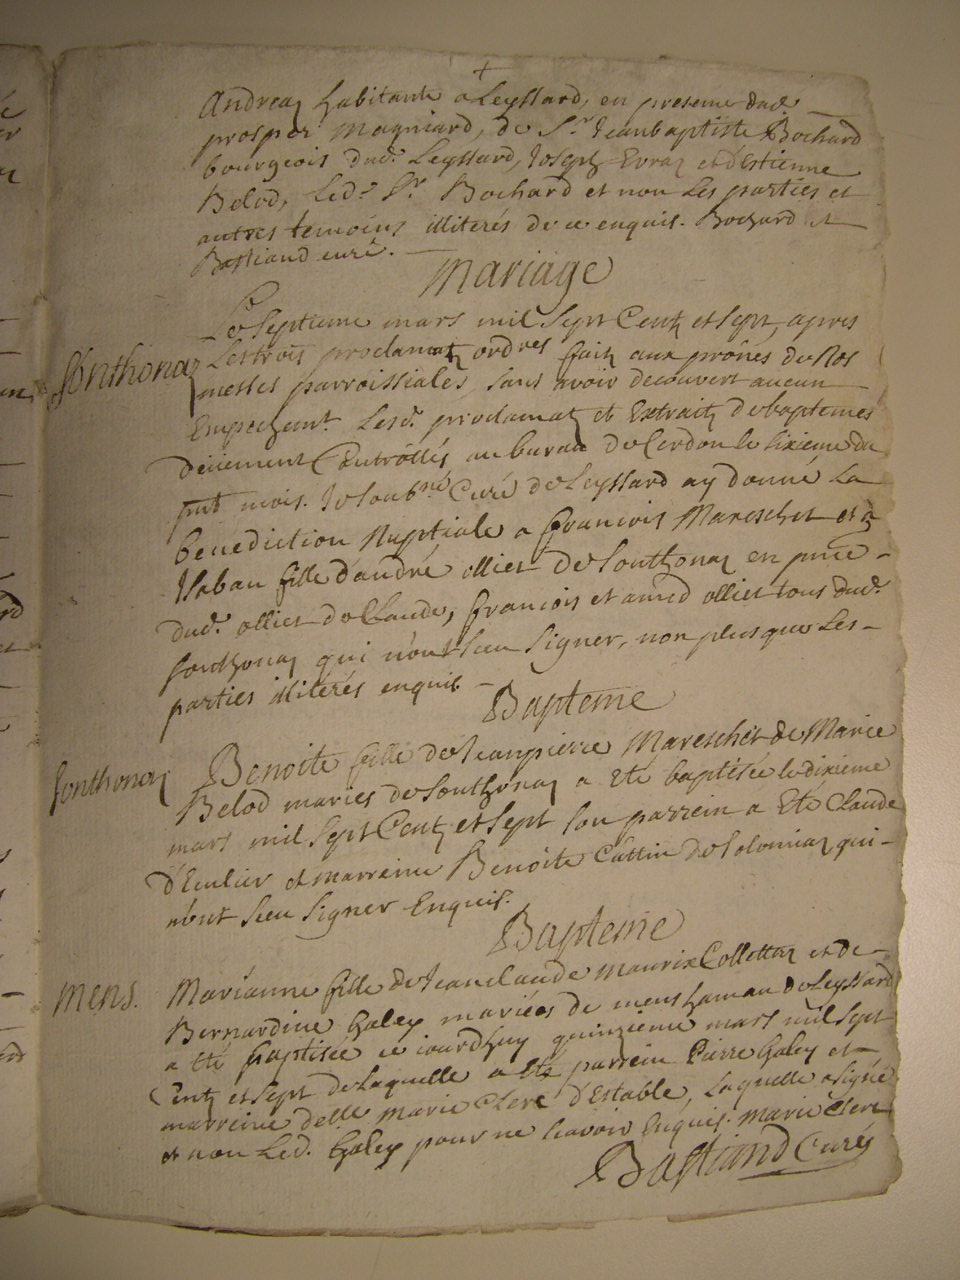 Andreaz habitante a Leyssard, en presence dud.
prosper magniard, de Sr. Jeanbaptiste Bochard
bourgeois dud. Leyssard, Joseph Evraz et d'Estienne
Belod, Led. Sr. Bochard et non Les parties et
autres temoins illiterés de ce enquis. Bochard et
Bastiand curé.
Mariage
Le Septieme mars mil Sept Centz et sept, apres
Sonthonaz
Les trois proclamatz ordres faitz aux prônes de Nos
messes parroissiales, sans avoir decouvert aucun
Empechemt. Lesd. proclamatz et Extraitz de baptemes
deüement Controllés au bureau de Cerdon le sixieme du
pnt mois. Je Soubné Curé de Leyssard ay donné La
benediction Nuptiale a francois Mareschet et a
Ysabau fille d'andré ollier de Sonthonaz en pnce
dud. ollier de Claude, francois et amed ollier tous dud.
Sonthonaz qui n'ont sceu signer, non plus que Les
parties illiterés enquis.
Bapteme
Sonthonaz
Benoite fille de Jeanpierre Mareschet de Marie
Belod mariés de Sonthonaz a été baptisée le dixieme
mars mil Sept Centz et Sept son parrein a Eté Claude
d'Eculier et marreine Benoite Cattin de Solomiaz qui
n'ont sceu signer Enquis.
Bapteme
mens.
Marianne fille de Jeanclaude maurix Collettaz et de
Bernardine Galey mariées de mens hameau de Leyssard
a été baptisée ce jourdhuy quinzieme mars mil sept
Centz et Sept de laquelle a été parrein Pierre Galey et
marreine delle. Marie Clerc d'Estable, Laquelle a signé
et non Led. Galey pour ne scavoir Enquis. marie Clerc
Bastiand Curé